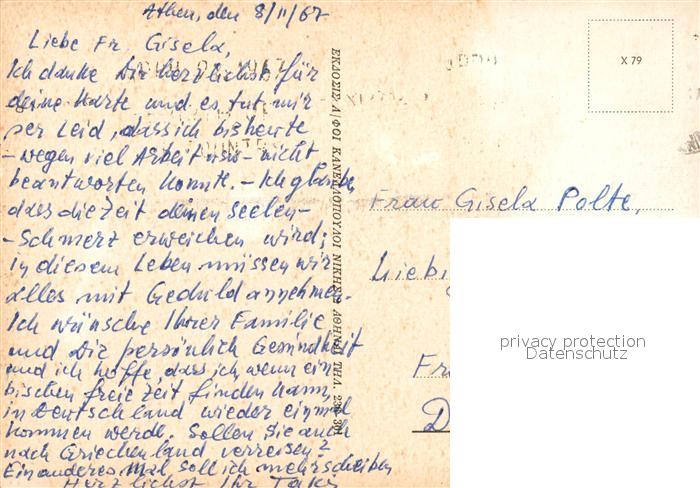 Athen, den 8/11/67
Liebe Fr. Gisela,
Ich danke Dir herzlichst für
deine Karte und es tut mir
ser Leid, dass ich bisheute
- wegen viel Arbeit usw - nicht
beantworten konnte. - Ich glaube,
dass die Zeit deinen Seelen-
- Schmerz erweichen wird;
in diesem Leben müssen wir
alles mit Geduld annehmen.
Ich wünsche Ihrer Familie
und Dir persönlich Gesundheit
und ich hoffe dass ich, wenn ein
bischen freie Zeit finden kann,
in Deutschland wieder einmal
kommen werde. Sollen Sie auch
nach Griechenland verreisen?
Ein anderes Mal soll ich mehr schreiben
Herzlichst Ihr Takis
ΕΚΔΟΣΙΣ Α|ΦΟΙ ΚΑΝΕΛΛΟΠΟΥΛΟΙ ΑΘΗΝΑΙ ΤΗΛ.
X 79
Frau Gisela Polte,
Liebi
Fr
D
privacy protection
Datenschutz